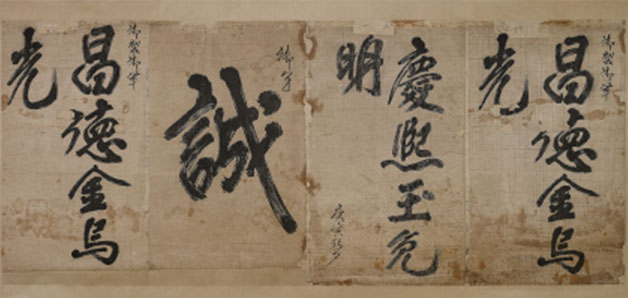 御製御筆
昌德金烏
光
慶熙玉兔
明
御筆
誠
御製御筆
昌德金烏
光